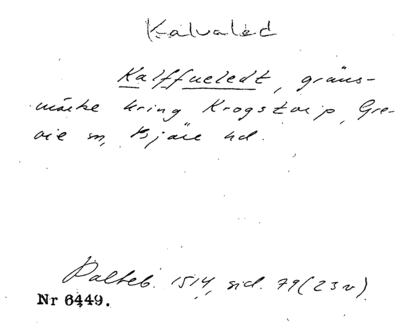 Kalvaled
Kalffueledt, gräns-
märke kring Krogstorp, Gre-
vie sn, Bjäre hd.
Palteb. 1514, sid. 79 (23v)
Nr 6449.